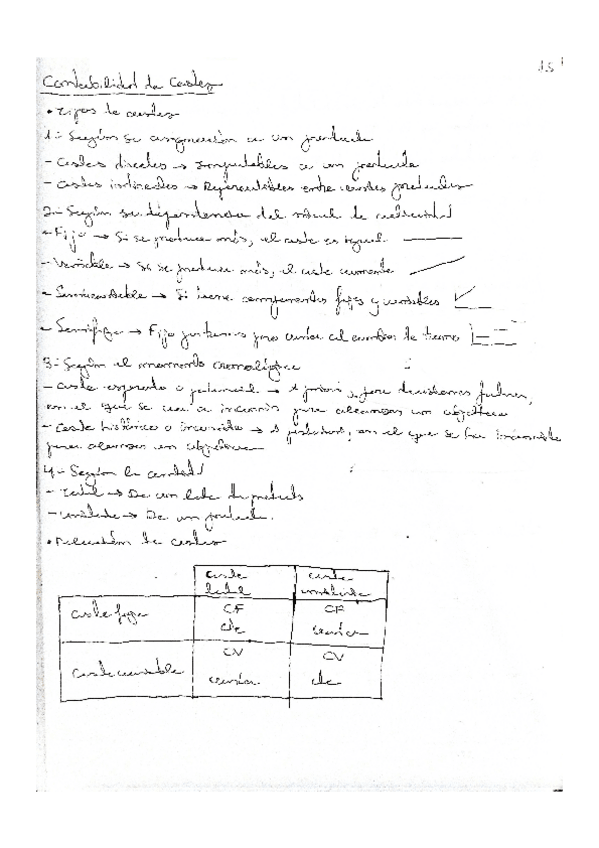 15
Contabilidad de Costes
• Tipos de costes
1.- Según su asignación a un producto
- Costes directos → Imputables a un producto
- Costes indirectos → Repercutibles entre varios productos
2.- Según su dependencia del nivel de actividad
- Fijo → Si se produce más, el coste es igual
- Variable → Si se produce más, el coste aumenta
- Semivariable → Si tiene componentes fijos y variables
- Semifijo → Fijo por tramos pero varía al cambiar de tramo
3.- Según el momento cronológico
- Coste esperado o potencial → A priori, para decisiones futuras,
en el que se va a incurrir para alcanzar un objetivo
- Coste histórico o incurrido → A posteriori, en el que se ha incurrido
para alcanzar un objetivo
4.- Según la cantidad
- Total → De un lote de producto
- Unitario → De un producto.
• de costes
coste total coste unitario
coste fijo CF cte CF varía
coste variable CV varía CV cte